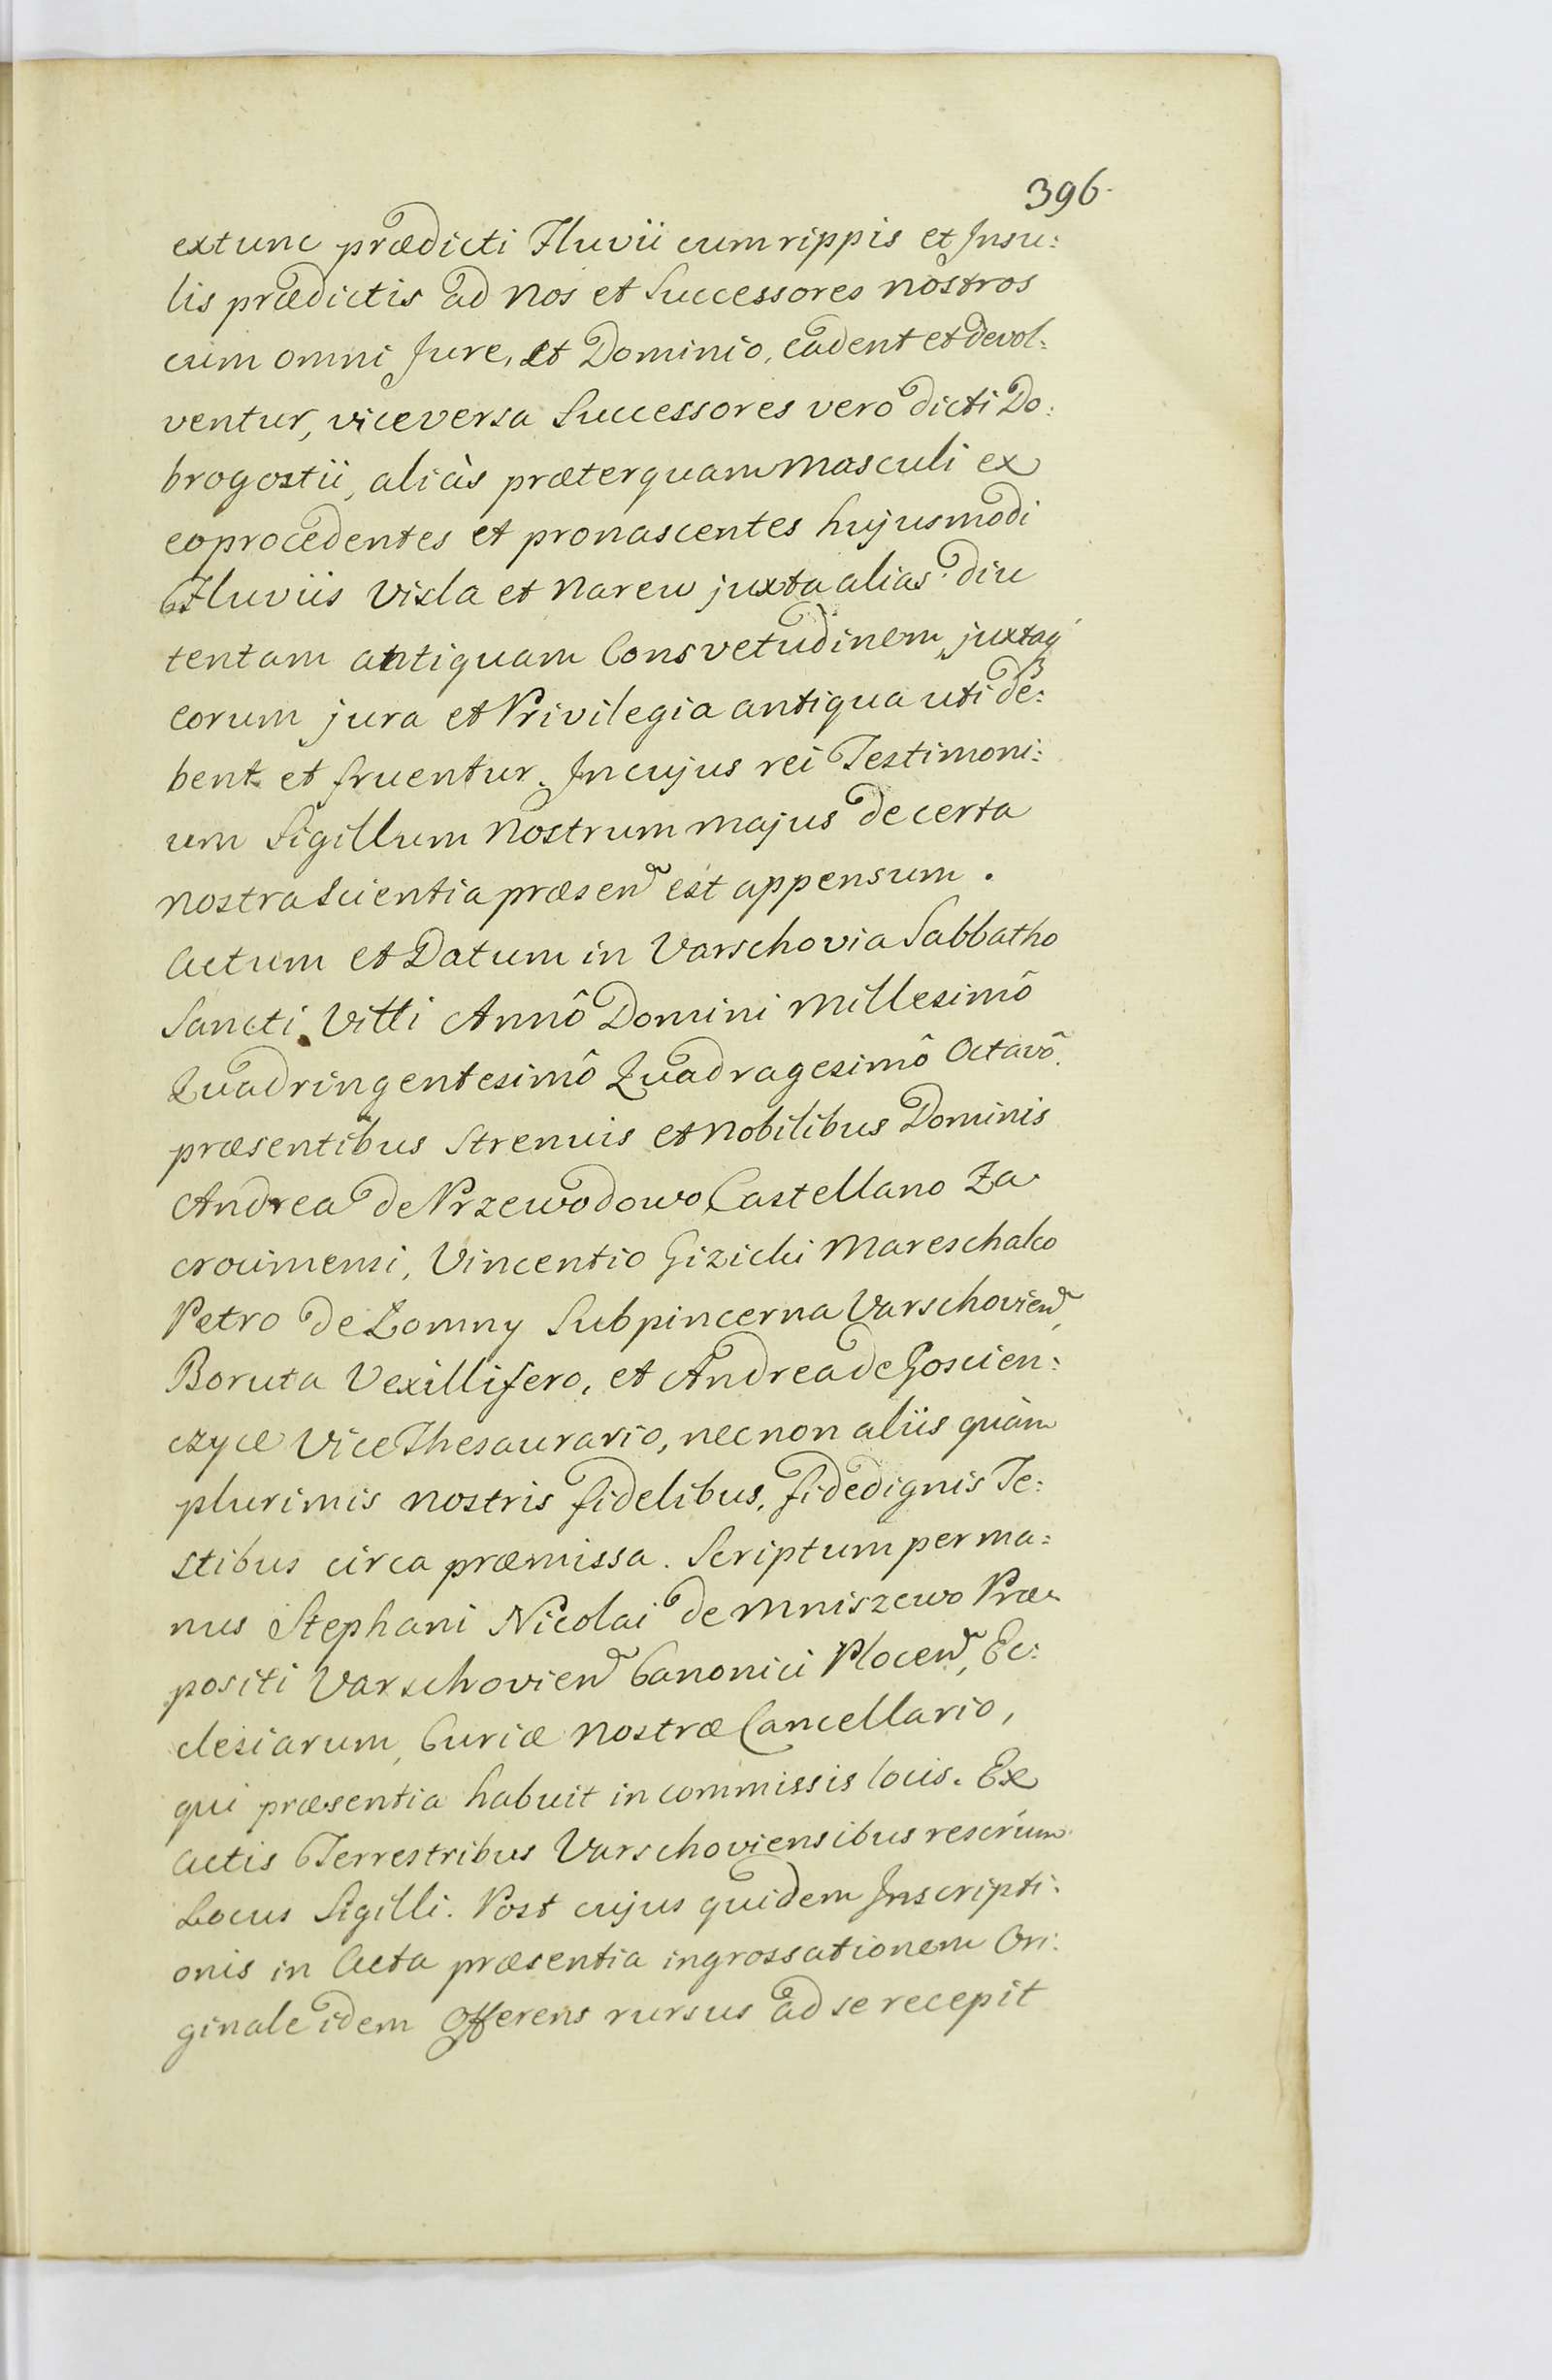 396.
extunc prædicti Fluvii cum rippis et Insu:
lis prædictis ad Nos et Successores nostros
cum omni Jure, et Dominio, cadent et devol:
ventur, viceversa Successores vero dicti Do:
brogostii, aliàs præterquam masculi ex
eo procedentes et pronascentes hujusmodi
Fluviis Visla et Narew juxta alias diu
tentam antiquam Consvetudinem, juxtaq́
eorum jura et Privilegia antiqua uti de:
bent et fruentur. In cujus rei Testimoni:
um Sigillum Nostrum majus de certa
nostra Scientia præsen̄ est appensum.
Actum et Datum in Varschovia Sabbatho
Sancti Vitti Annô Domini Millesimô
Quadringentesimô Quadragesimô Octavô.
præsentibus Strenuis et Nobilibus Dominis
Andrea de Przewodowo Castellano Za
crocimensi, Vincentio Gizicki Mareschalco
Petro de Lomny Subpincerna Varschovien̄,
Boruta Vexillifero, et Andrea de Goscien:
czyce Vice Thesaurario, necnon aliis quàm
plurimis nostris fidelibus, fidedignis Te:
stibus circa præmissa. Scriptum per ma:
nus Stephani Nicolai de Mniszewo Præ
positi Varschovien̄ Canonici Plocen̄, Ec:
clesiarum, Curiæ nostræ Cancellario,
qui præsentia habuit in commissis locis. Ex
Actis Terrestribus Varschoviensibus rescrium
Locus Sigilli. Post cujus quidem Inscripti:
onis in Acta præsentia ingrossationem Ori:
ginale idem Offerens rursus ad se recepit